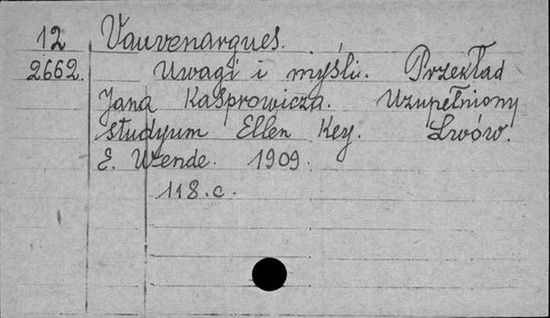 12 Vauvenargues.
2662. Uwagi i myśli. Przekład
Jana Kasprowicza. Uzupełniony
studyum Ellen Key. Lwów.
E. Wende. 1909.
118.c.